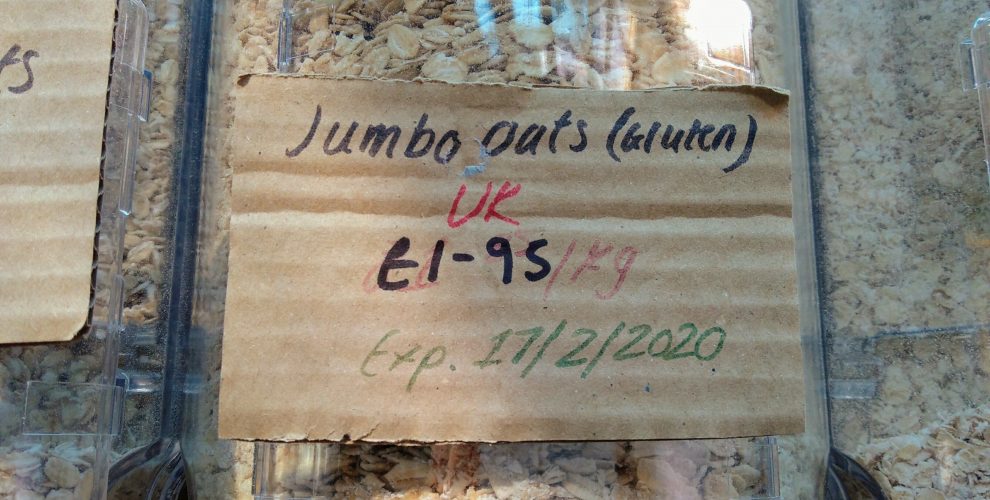 ts
Jumbo oats (Gluten)
UK
£1-95/kg
Exp. 17/2/2020